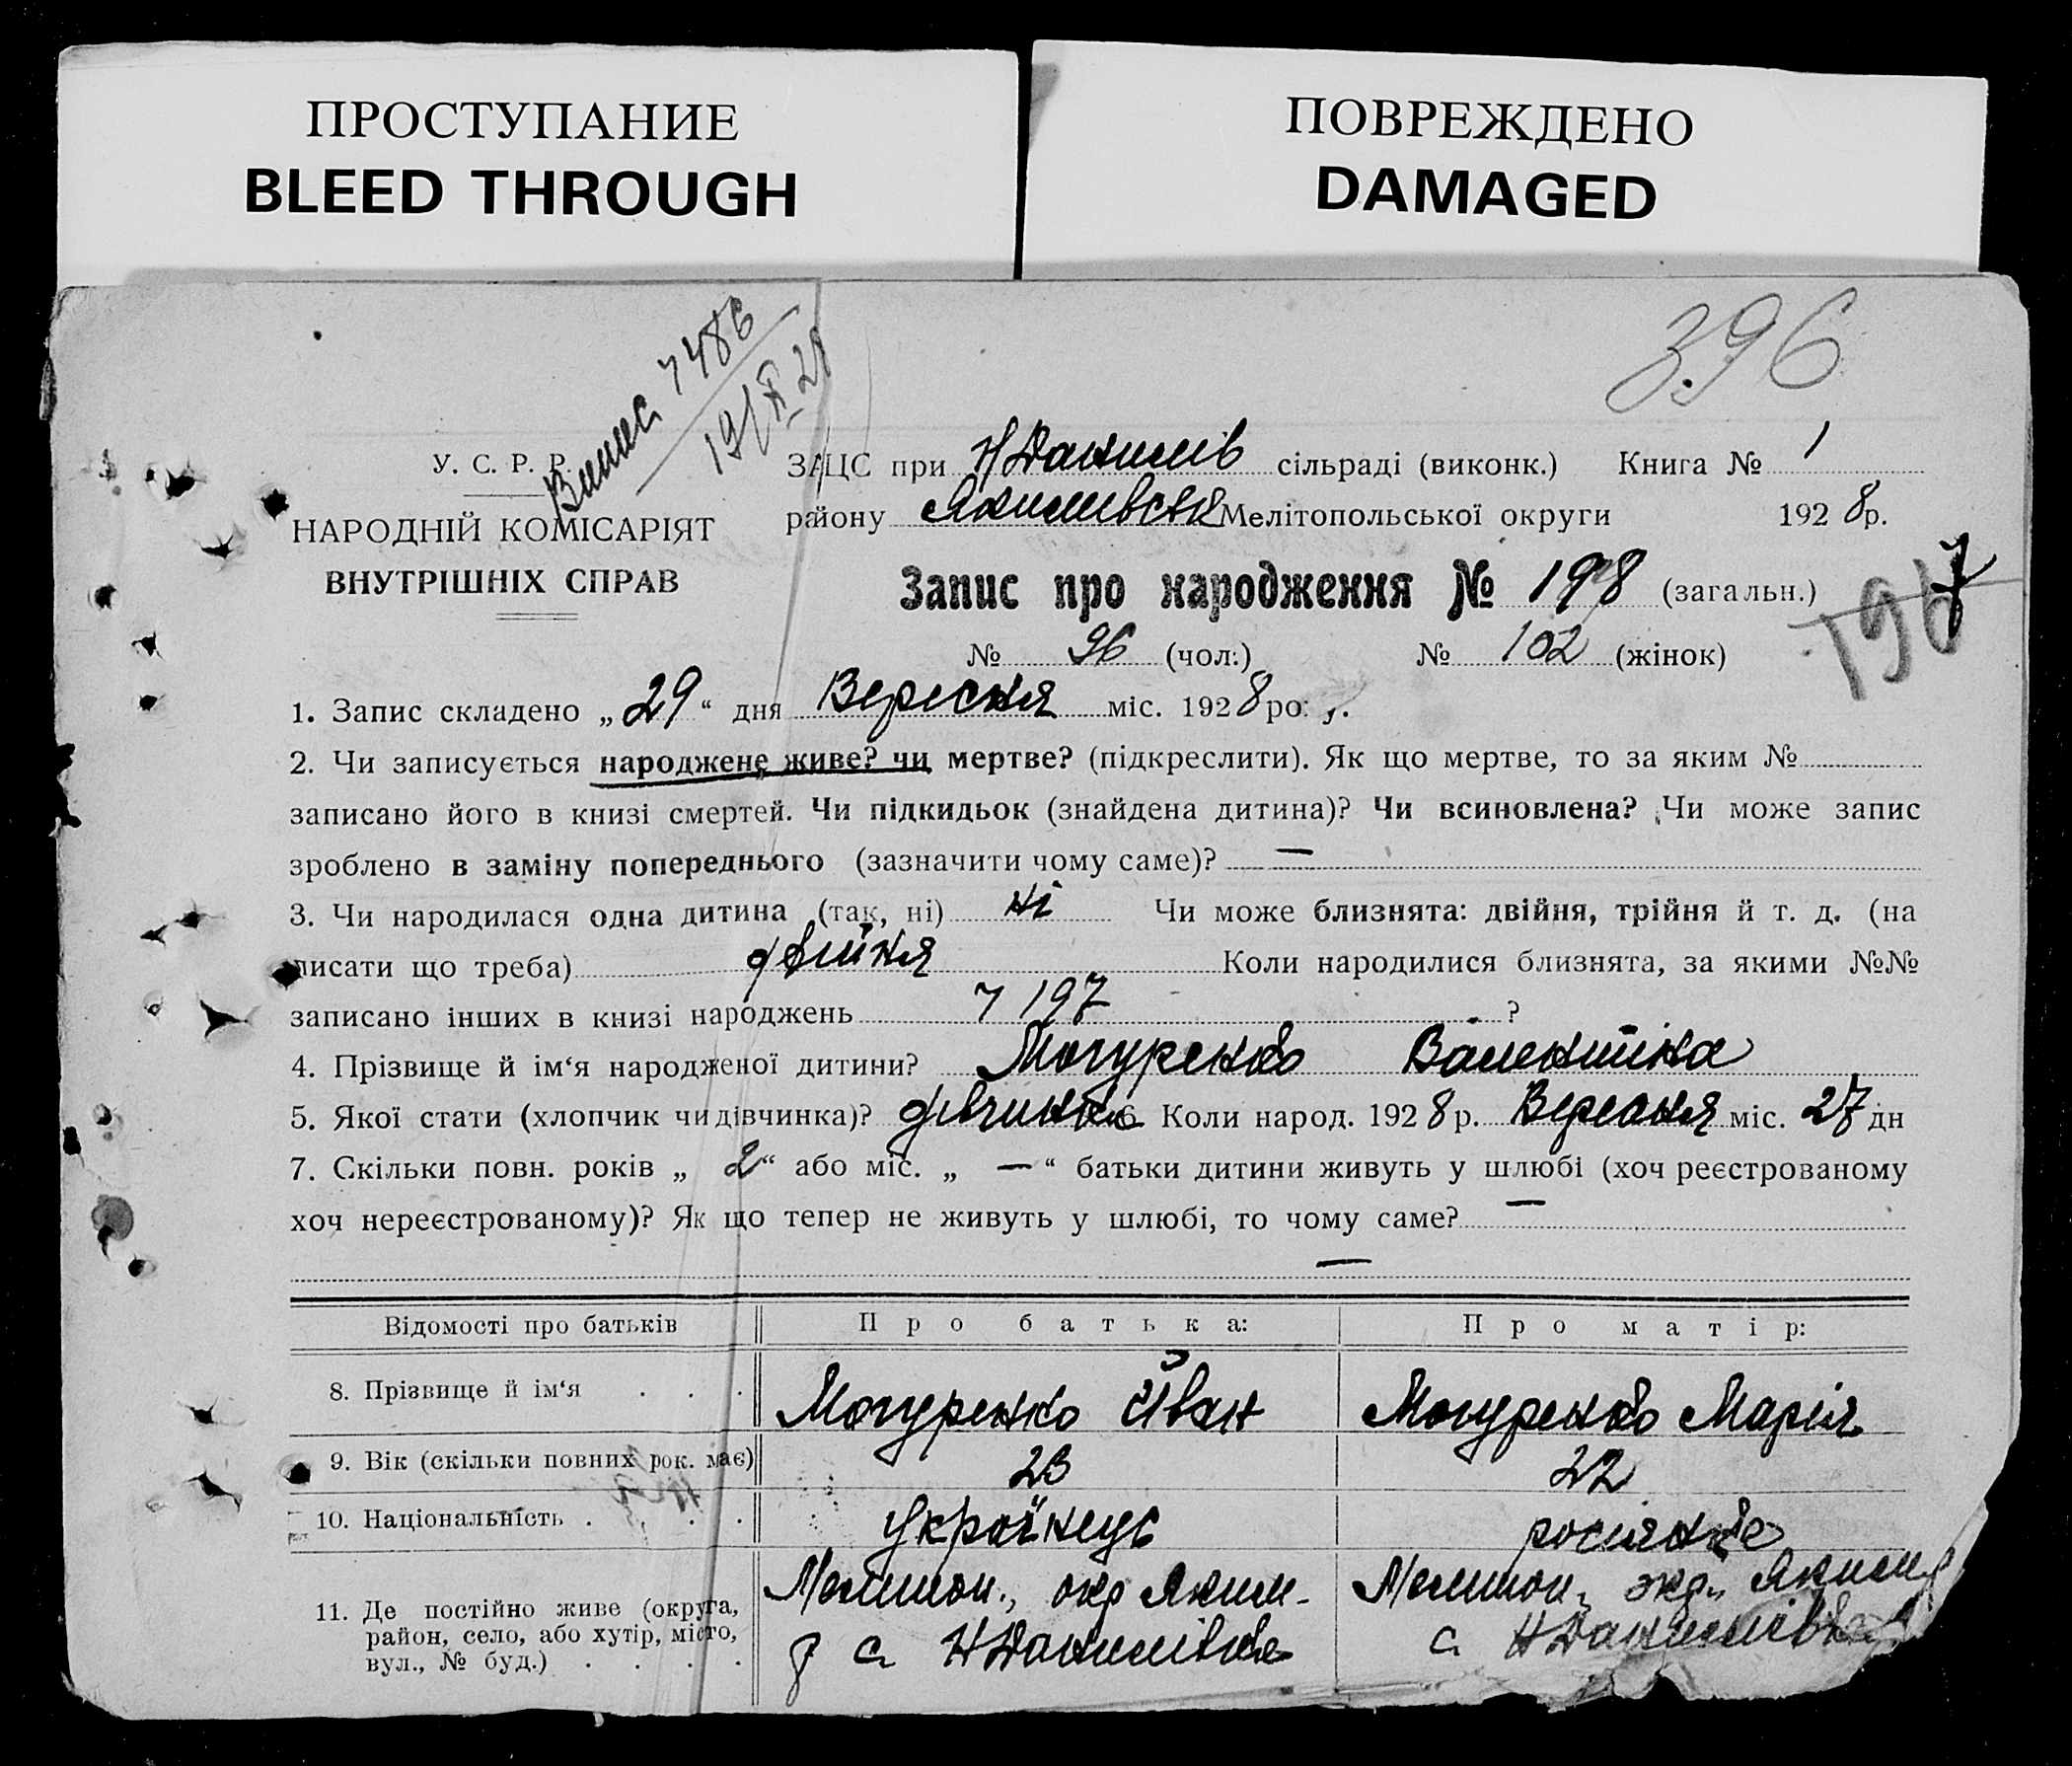 ПРОСТУПАНИЕ
BLEED THROUGH
ПОВРЕЖДЕНО
DAMAGED
396
7486
У. С. Р. Р.
НАРОДНІЙ КОМІСАРІЯТ
ВНУТРІШНІХ СПРАВ
ЗАЦС при Н Данилів сільраді (виконк.) Книга № 1
району Якимівськ Мелітопольської округи 1928 р.
Запис про народження № 198 (загальн.)
197
№ 96 (чол.) № 102 (жінок)
1. Запис складено „29“ дня Вересня міс. 1928 ро
2. Чи записується народжене живе? чи мертве? (підкреслити). Як що мертве, то за яким №
записано його в книзі смертей. Чи підкидьок (знайдена дитина)? Чи всиновлена? Чи може запис
зроблено в заміну попереднього (зазначити чому саме)? —
3. Чи народилася одна дитина (так, ні) ні Чи може близнята: двійня, трійня й т. д. (на
писати що треба) двійня Коли народилися близнята, за якими №№
записано інших в книзі народжень 197 ?
4. Прізвище й ім‘я народженої дитини? Могуренко Валентіна
5. Якої стати (хлопчик чи дівчинка)? дівчинка 6. Коли народ. 1928 р. Вересня міс. 27 дн
7. Скільки повн. років „2“ або міс. „—“ батьки дитини живуть у шлюбі (хоч реєстрованому
хоч нереєстрованому)? Як що тепер не живуть у шлюбі, то чому саме? —
—
Відомості про батьків Про батька: Про матір:
8. Прізвище й ім‘я . . . Могуренко Іван Могуренко Марія
9. Вік (скільки повних рок. має) 23 22
10. Національність . . . . українець росіянка
11. Де постійно живе (округа, Мелитоп., окр Яким- Мелитоп., окр.,
район, село, або хутір, місто, р с Н Данилівка с Н Данилівка
вул., № буд.) . . . .